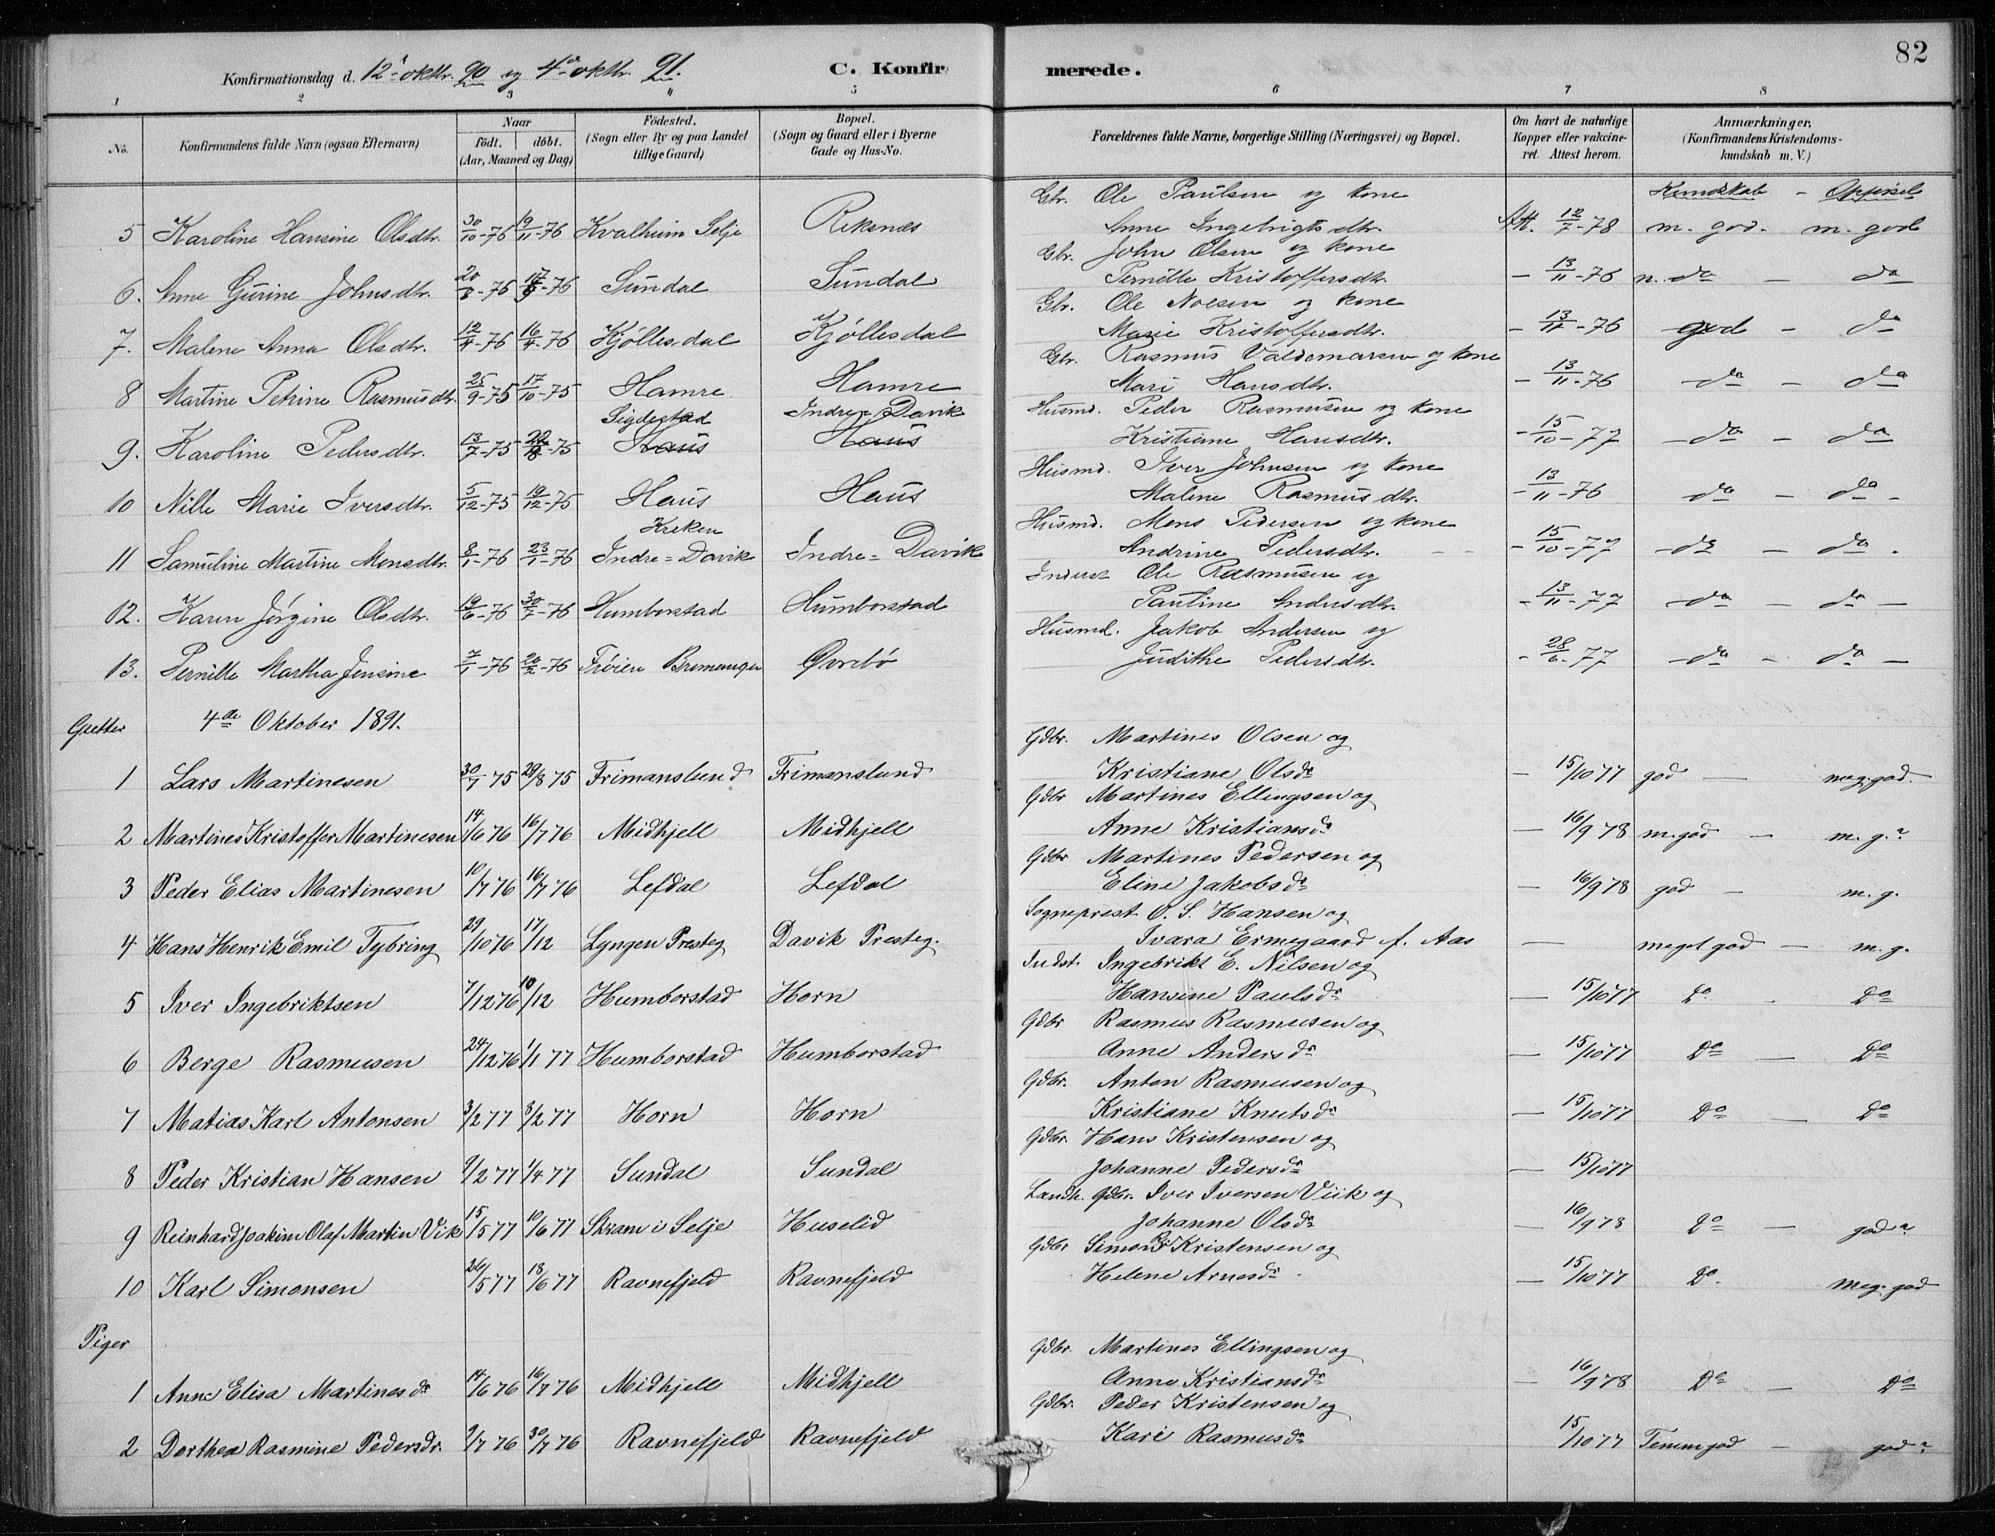 82
Konfirmationsdag d. 12te oktbr. 90 og 4de oktbr. 91. C. Konfirmerede.
1 2 3 4 5 6 7 8
No. Konfirmandens fulde Navn (ogsaa Efternavn) Naar født. døbt. (Aar, Maaned og Dag) Födested. (Sogn eller By og paa Landet tillige Gaard) Bopæl. (Sogn og Gaard eller i Byerne Gade og Hus-No. Forældrenes fulde Navne, borgerlige Stilling (Næringsvei) og Bopæl. Om havt de naturlige Kopper eller vakcineret. Attest herom. Anmærkninger. (Konfirmandens Kristendomskundskab m. V.)
Gbr. Ole Paulsen og kone Kundskab - Opførsel
5 Karoline Hansine Olsdtr. 30/10-76 19/11-76 Kvalheim Selje Reksnæs Anne Ingebrigtsdtr. Att. 12/7-78 m. god. m. god
Gbr. John Olsen og kone
6. Anne Gurine Johnsdtr. 20/8-76 17/9-76 Sundal Sundal Pernille Kristoffersdtr. - 13/11-76 n. do - do
Gbr. Ole Nolsen og kone
7. Malene Anna Olsdtr. 12/4-76 16/4-76 Kjöllesdal Kjöllesdal Marie Kristoffersdtr. - 13/11-76 god - do
Gbr. Rasmus Valdemarsen og kone
8 Martine Petrine Rasmusdtr. 25/9-75 17/10-75 Hamre Hamre Mari Hansdtr. - 13/11-76 do - do
Sigdestad Indre Davik Husmd. Peder Rasmusen og kone
9. Karoline Pedersdtr. 13/7-75 22/8-75 Haus Haus Kristiane Hansdtr. - 15/10-77 - do - do
Husmd. Iver Johnsen og kone
10 Nille Marie Iversdtr. 5/12-75 19/12-75 Haus Haus Malene Rasmusdtr. - 13/11-76 do - do -
Kreken Husmd. Mons Pedersen og kone
11 Samuline Martine Monsdtr. 8/1-76 23/1-76 Indre=Davik Indre=Davik Andrine Pedersdtr. - 15/10-77 - do - do.
Inderst Ole Rasmusen og
12. Karen Jörgine Olsdtr. 19/6-76 30/7-76 Humborstad Humborstad Pauline Andersdtr. - 13/11-77 - do - do -
Husmd. Jakob Andersen og
13. Pernille Martha Jensine 7/1-76 20/2-76 Fröien Bremanger Övrebö Judithe Pedersdtr. - 28/6-77 - do - do -
Gutter 4de Oktober 1891.
Gdbr. Martines Olsen og
1 Lars Martinesen 30/7 75 29/8 75 Frimanslund Frimanslund Kristiane Olsdr - 15/10 77 god - meg. god.
Gdbr Martines Ellingsen og
2 Martines Kristoffer Martinesen 14/6 76 16/7 76 Midhjell Midhjell Anne Kristiansdr - 16/9 78 m. god - m. g.?
Gdbr Martines Pedersen og
3 Peder Elias Martinesen 10/7 76 16/7 76 Lefdal Lefdal Eline Jakobsdr - 16/9 78 god - m. g.
Sogneprest O. S. Hansen og
4 Hans Henrik Emil Tybring 29/10 76 17/12 Lyngen Presteg Davik Presteg. Ivara Ermegaard f. Aas - meget god - m. g.
Indst. Ingebrikt E. Nilsen og
5 Iver Ingebriktsen 7/12 76 10/12 Humborstad Horn Hansine Paulsdr - 15/10 77 Do - Do
Gdbr Rasmus Rasmusen og
6 Berge Rasmusen 24/12 76 1/1 77 Humborstad Humborstad Anne Andersdr - 15/10 77 Do - Do
Gdbr. Anton Rasmusen og
7 Matias Karl Antonsen 3/2 77 8/2 77 Horn Horn Kristiane Knutsdr - 15/10 77 Do - Do
Gdbr. Hans Kristensen og
8 Peder Kristian Hansen 9/2 77 1/4 77 Sundal Sundal Johanne Pedersdr - 15/10 77
Landh. Gdbr. Iver Iversen Viik og
9 Reinhard Joakim Olaf Martin Vik 15/5 77 10/6 77 Skram i Selje Huselid Johanne Olsdr - 16/9 78 Do - god?
Gdbr Simon Kristensen og
10 Karl Simonsen 26/5 77 18/6 77 Ravnefjeld Ravnefjeld Helene Arnesdr. - 15/10 77 Do. meg. god
Piger
Gdbr. Martines Ellingsen og
1 Anne Elisa Martinesdr 14/6 76 16/7 76 Midhjell Midhjell Anne Kristiansdr - 16/9 78 Do - Do
Gdbr. Peder Kristensen og
2 Dorthea Rasmine Pedersdr. 9/7 76 30/7 76 Ravnefjeld Ravnefjeld Kari Rasmusdr 15/10 77 Temm god - god?